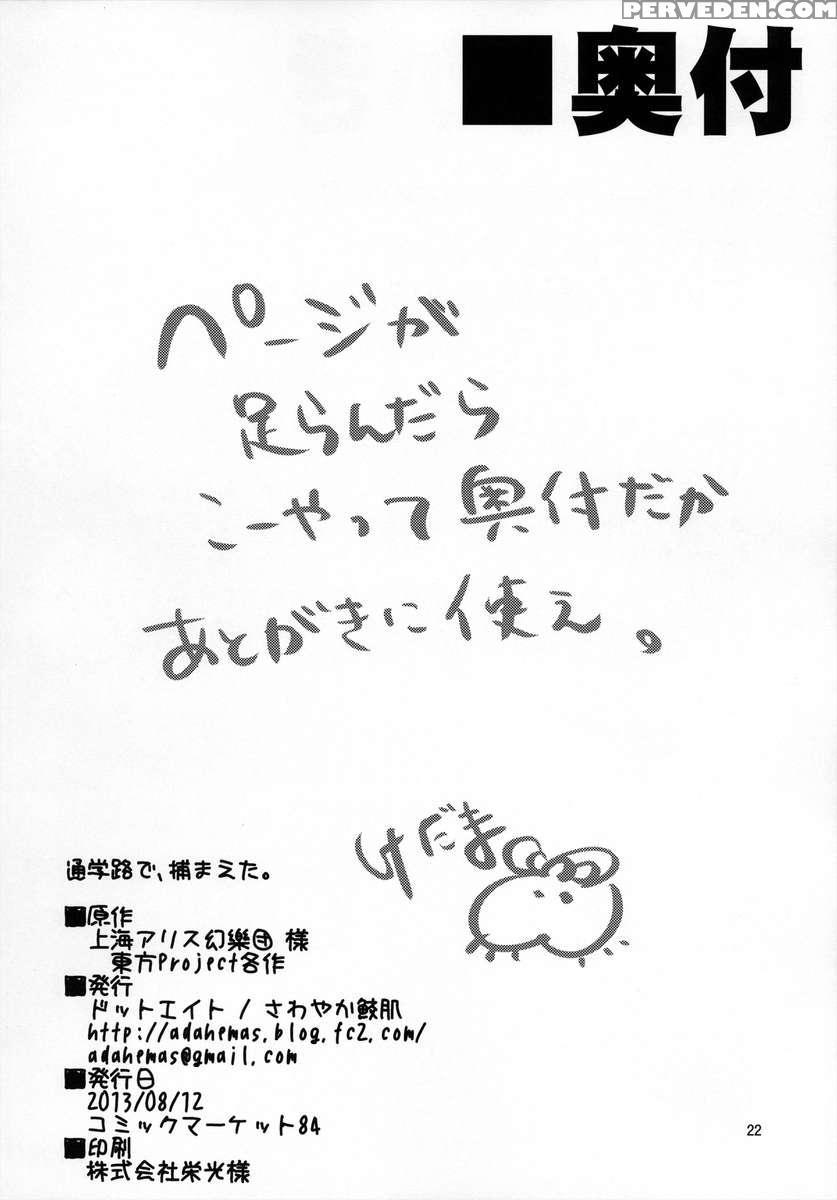 PERVEDEN.COM
■奥付
ページが
足らんだら
こーやって奥付だか
あとがきに使え。
けだま
通学路で、捕まえた。
■原作
上海アリス幻樂団 様
東方Project各作
■発行
ドットエイト / さわやか鮫肌
http://adahemas.blog.fc2.com/
adahemas@gmail.com
■発行日
2013/08/12
コミックマーケット84
■印刷
株式会社栄光様
22